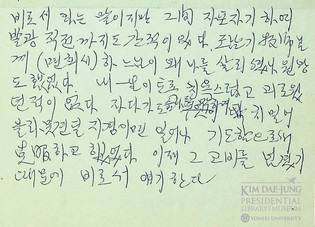 비로서 하는 말이지만 그間 자포자기 하며
발광 직전 까지도 간적이 있다. 모 님께
께 (면회시) 하느님이 왜 나를 살리 원망
도 했었다. 내 一生 이토록 괴로웠
던적이 없다. 자다가도 일어
불리 지경이면 일어나 기도함으로써
하고 했었다. 이제 그 고비를 넘겼기
때문에 비로서 얘기한다
KIM DAE-JUNG
PRESIDENTIAL
LIBRARY & MUSEUM
YONSEI UNIVERSITY